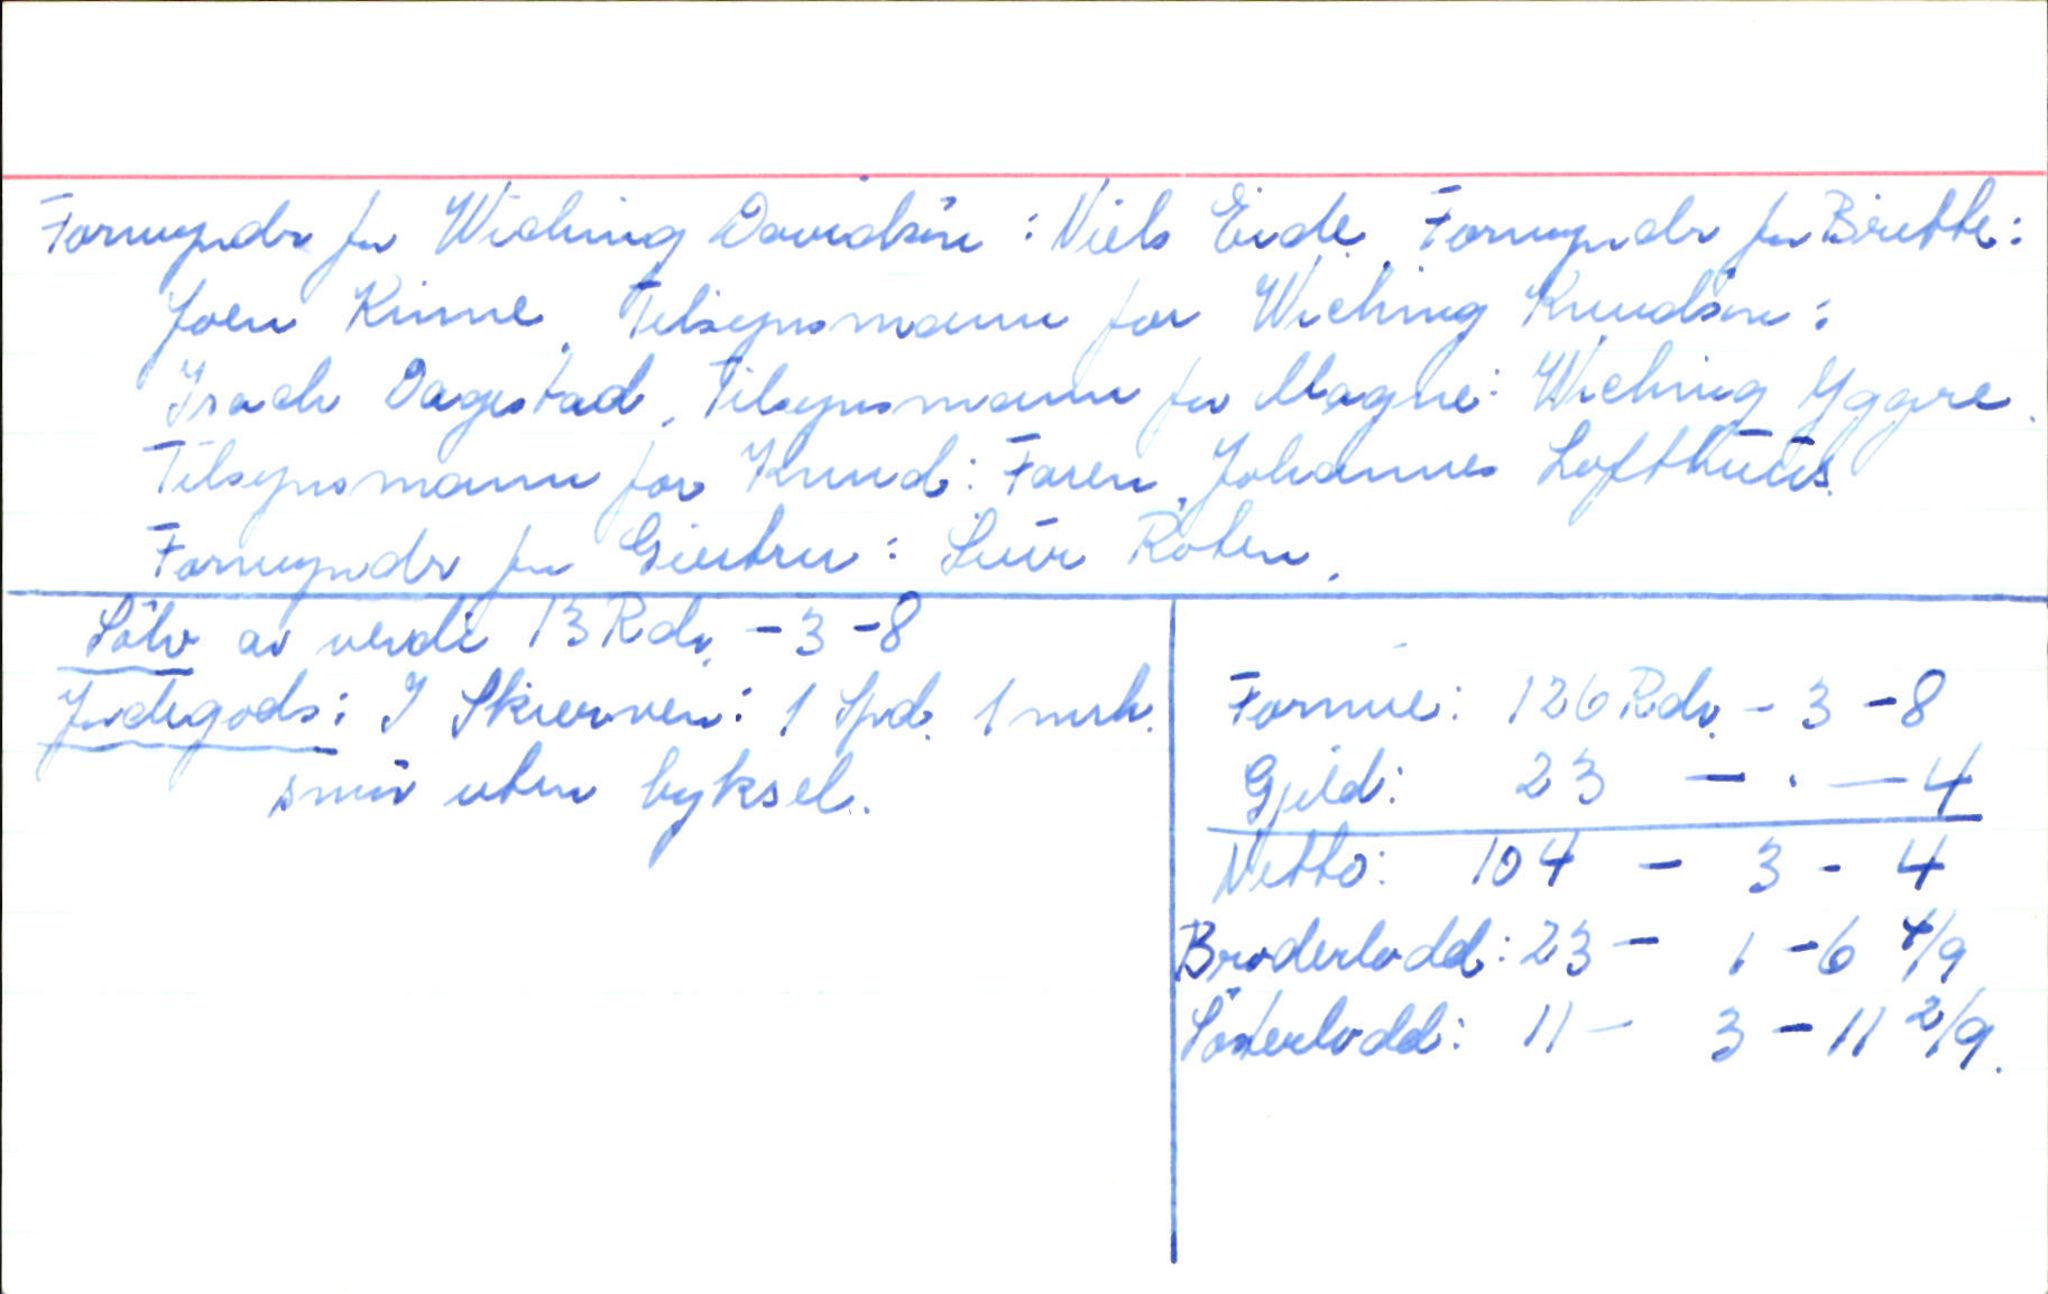 Formyndr for Wiching Davidsön: Niels Eide. Formyndr for Britthe:
Joen Kinne. Tilsynsmann for Wiching Knudsön:
Isach Dagestad. Tilsynsmann for Magne: Wiching Yggre.
Tilsynsmann for Knud: Faren, Johannes Lofthuus.
Formyndr for Giertru: Siur Röten.
Sölv av verdi 13 Rdr. - 3 - 8
Jordegods: I Skierven: 1 Spd. 1 mrk.
smör uten byksel.
Formue: 126 Rdr. - 3 - 8
Gjeld: 23 - . - 4
Netto: 104 - 3 - 4
Broderlodd: 23 - 1 - 6 4/9
Sösterlodd: 11 - 3 - 11 2/9.